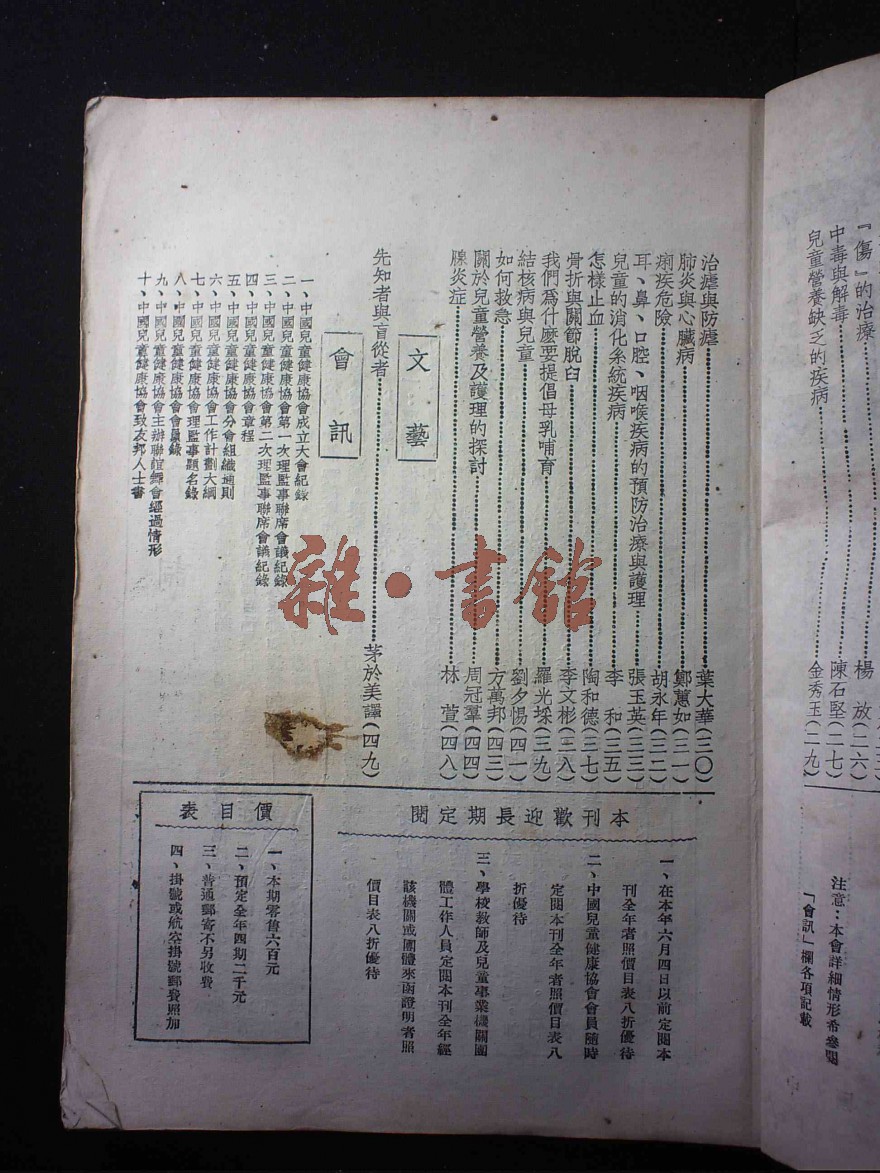 『傷』的治療 楊 放(二六)
中毒與解毒 陳石堅(二七)
兒童營養缺乏的疾病 金秀玉(二九)
注意：本會詳細情形希參閱
「會訊」欄各項記載
治瘧與防瘧 葉大華(三〇)
肺炎與心臟病 鄭蕙如(三一)
痢疾危險 胡永年(三二)
耳、鼻、口腔、咽喉疾病的預防治療與護理 張玉英(三三)
兒童的消化系統疾病 李 和(三五)
怎樣止血 陶和德(三七)
骨折與關節脫臼 李文彬(三八)
我們為什麼要提倡母乳哺育 羅光埰(三九)
結核病與兒童 劉夕惕(四一)
如何救急 方萬邦(四三)
關於兒童營養及護理的探討 周冠羣(四四)
腺炎症 林 萱(四八)
文藝
先知者與盲從者 茅於美譯(四九)
會訊
一、中國兒童健康協會成立大會紀錄
二、中國兒童健康協會第一次理監事聯席會議紀錄
三、中國兒童健康協會第二次理監事聯席會議紀錄
四、中國兒童健康協會章程
五、中國兒童健康協會分會組織通則
六、中國兒童健康協會工作計劃大綱
七、中國兒童健康協會理監事題名錄
八、中國兒童健康協會會員錄
九、中國兒童健康協會主辦聯誼會經過情形
十、中國兒童健康協會致友邦人士書
本刊歡迎長期定閱
一、在本年六月四日以前定閱本
刊全年者照價目表八折優待
二、中國兒童健康協會會員隨時
定閱本刊全年者照價目表八
折優待
三、學校教師及兒童事業機關團
體工作人員定閱本刊全年經
該機關或團體來函證明者照
價目表八折優待
價目表
一、本期零售六百元
二、預定全年四期二千元
三、普通郵寄不另收費
四、掛號或航空掛號郵費照加
雜·書館